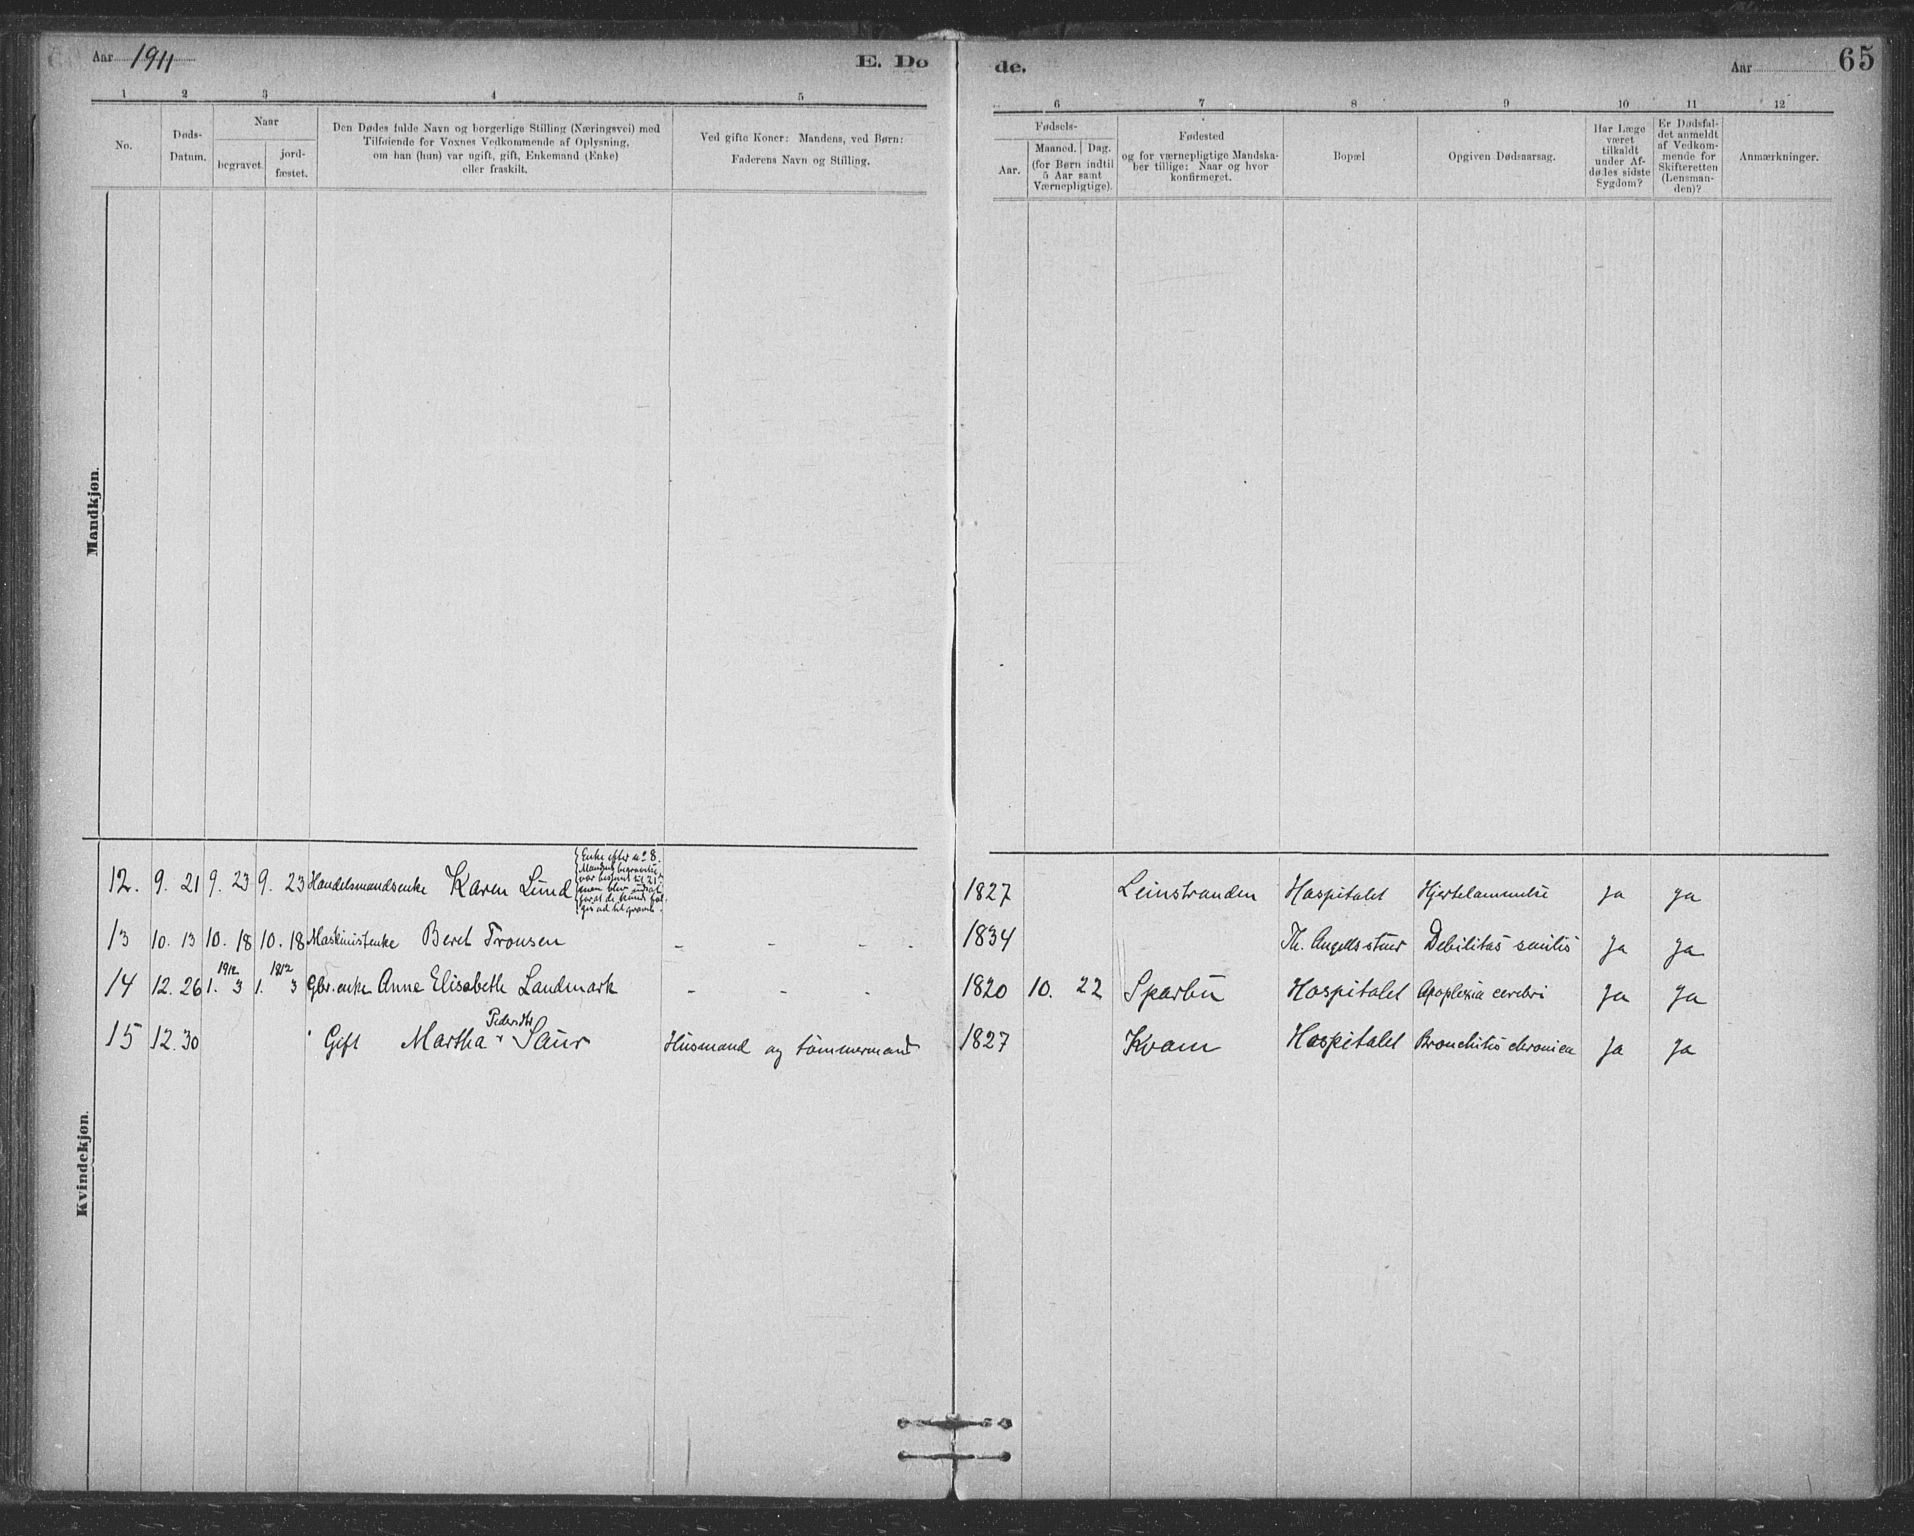 Aar 1911
E. Dø
de.
Aar
65
1 2 3 4 5
6 7 8 9 10 11 12
No.
Døds-
Datum.
Naar
begravet.
jord-
fæstet.
Den Dødes fulde Navn og borgerlige Stilling (Næringsvei) med
Tilføiende for Voxnes Vedkommende af Oplysning,
om han (hun) var ugift, gift, Enkemand (Enke)
eller fraskilt.
Ved gifte Koner: Mandens, ved Børn:
Faderens Navn og Stilling.
Fødsels-
Aar.
Maaned. Dag.
(for Børn indtil
5 Aar samt
Værnepligtige).
Fødested
og for værnepligtige Mandska-
ber tillige: Naar og hvor
konfirmeret.
Bopæl
Opgiven Dødsaarsag.
Har Læge
været
tilkaldt
under Af-
dødes sidste
Sygdom?
Er Dødsfal-
det anmeldt
af Vedkom-
mende for
Skifteretten
(Lensman-
den)?
Anmærkninger.
Mandkjøn.
Kvindekjøn.
Enke efter no 8.
Mandens begravelse
var bestemt til 21
men blev udsat
for at de kunde føl-
ges ad til graven.
12. 9. 21 9. 23 9. 23 Handelsmandsenke Karen Lund 1827 Leinstranden Hospitalet Hjertelammelse Ja Ja
13 10. 13 10. 18 10. 18 Maskinistenke Beret Tronsen - - - 1834 Th. Angells stuer Debilitas senilis Ja Ja
1912 1812
14 12. 26 1. 3 1. 3 Gbr.enke Anne Elisabeth Landmark - - - 1820 10. 22 Sparbu Hospitalet Apoplexia cerebri Ja Ja
Pedersdtr
15 12. 30 Gift Martha Saur Husmand og tømmermand 1827 Kvam Hospitalet Bronchitis chronica Ja Ja